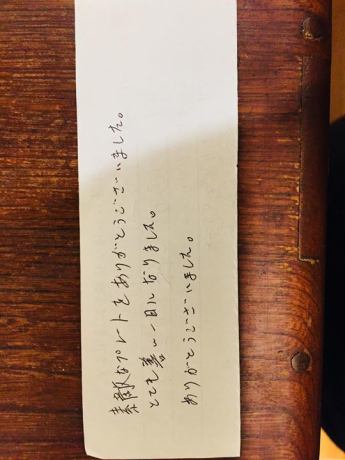 素敵なプレートをありがとうございました。
とても善い一日になりました。
ありがとうございました。